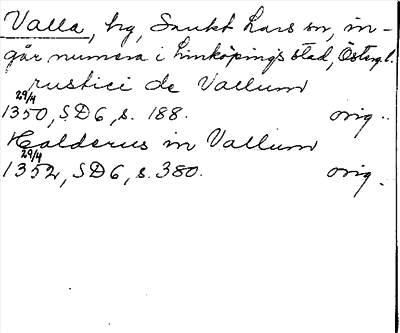 Valla, hg, Sankt Lars sn, in-
går numera i Linköpings stad, Östergl.
rustici de Vallum
29/4
1350, SD 6, s. 188. orig.
Halderus in Vallum
29/4
1352, SD 6, s. 380. orig.